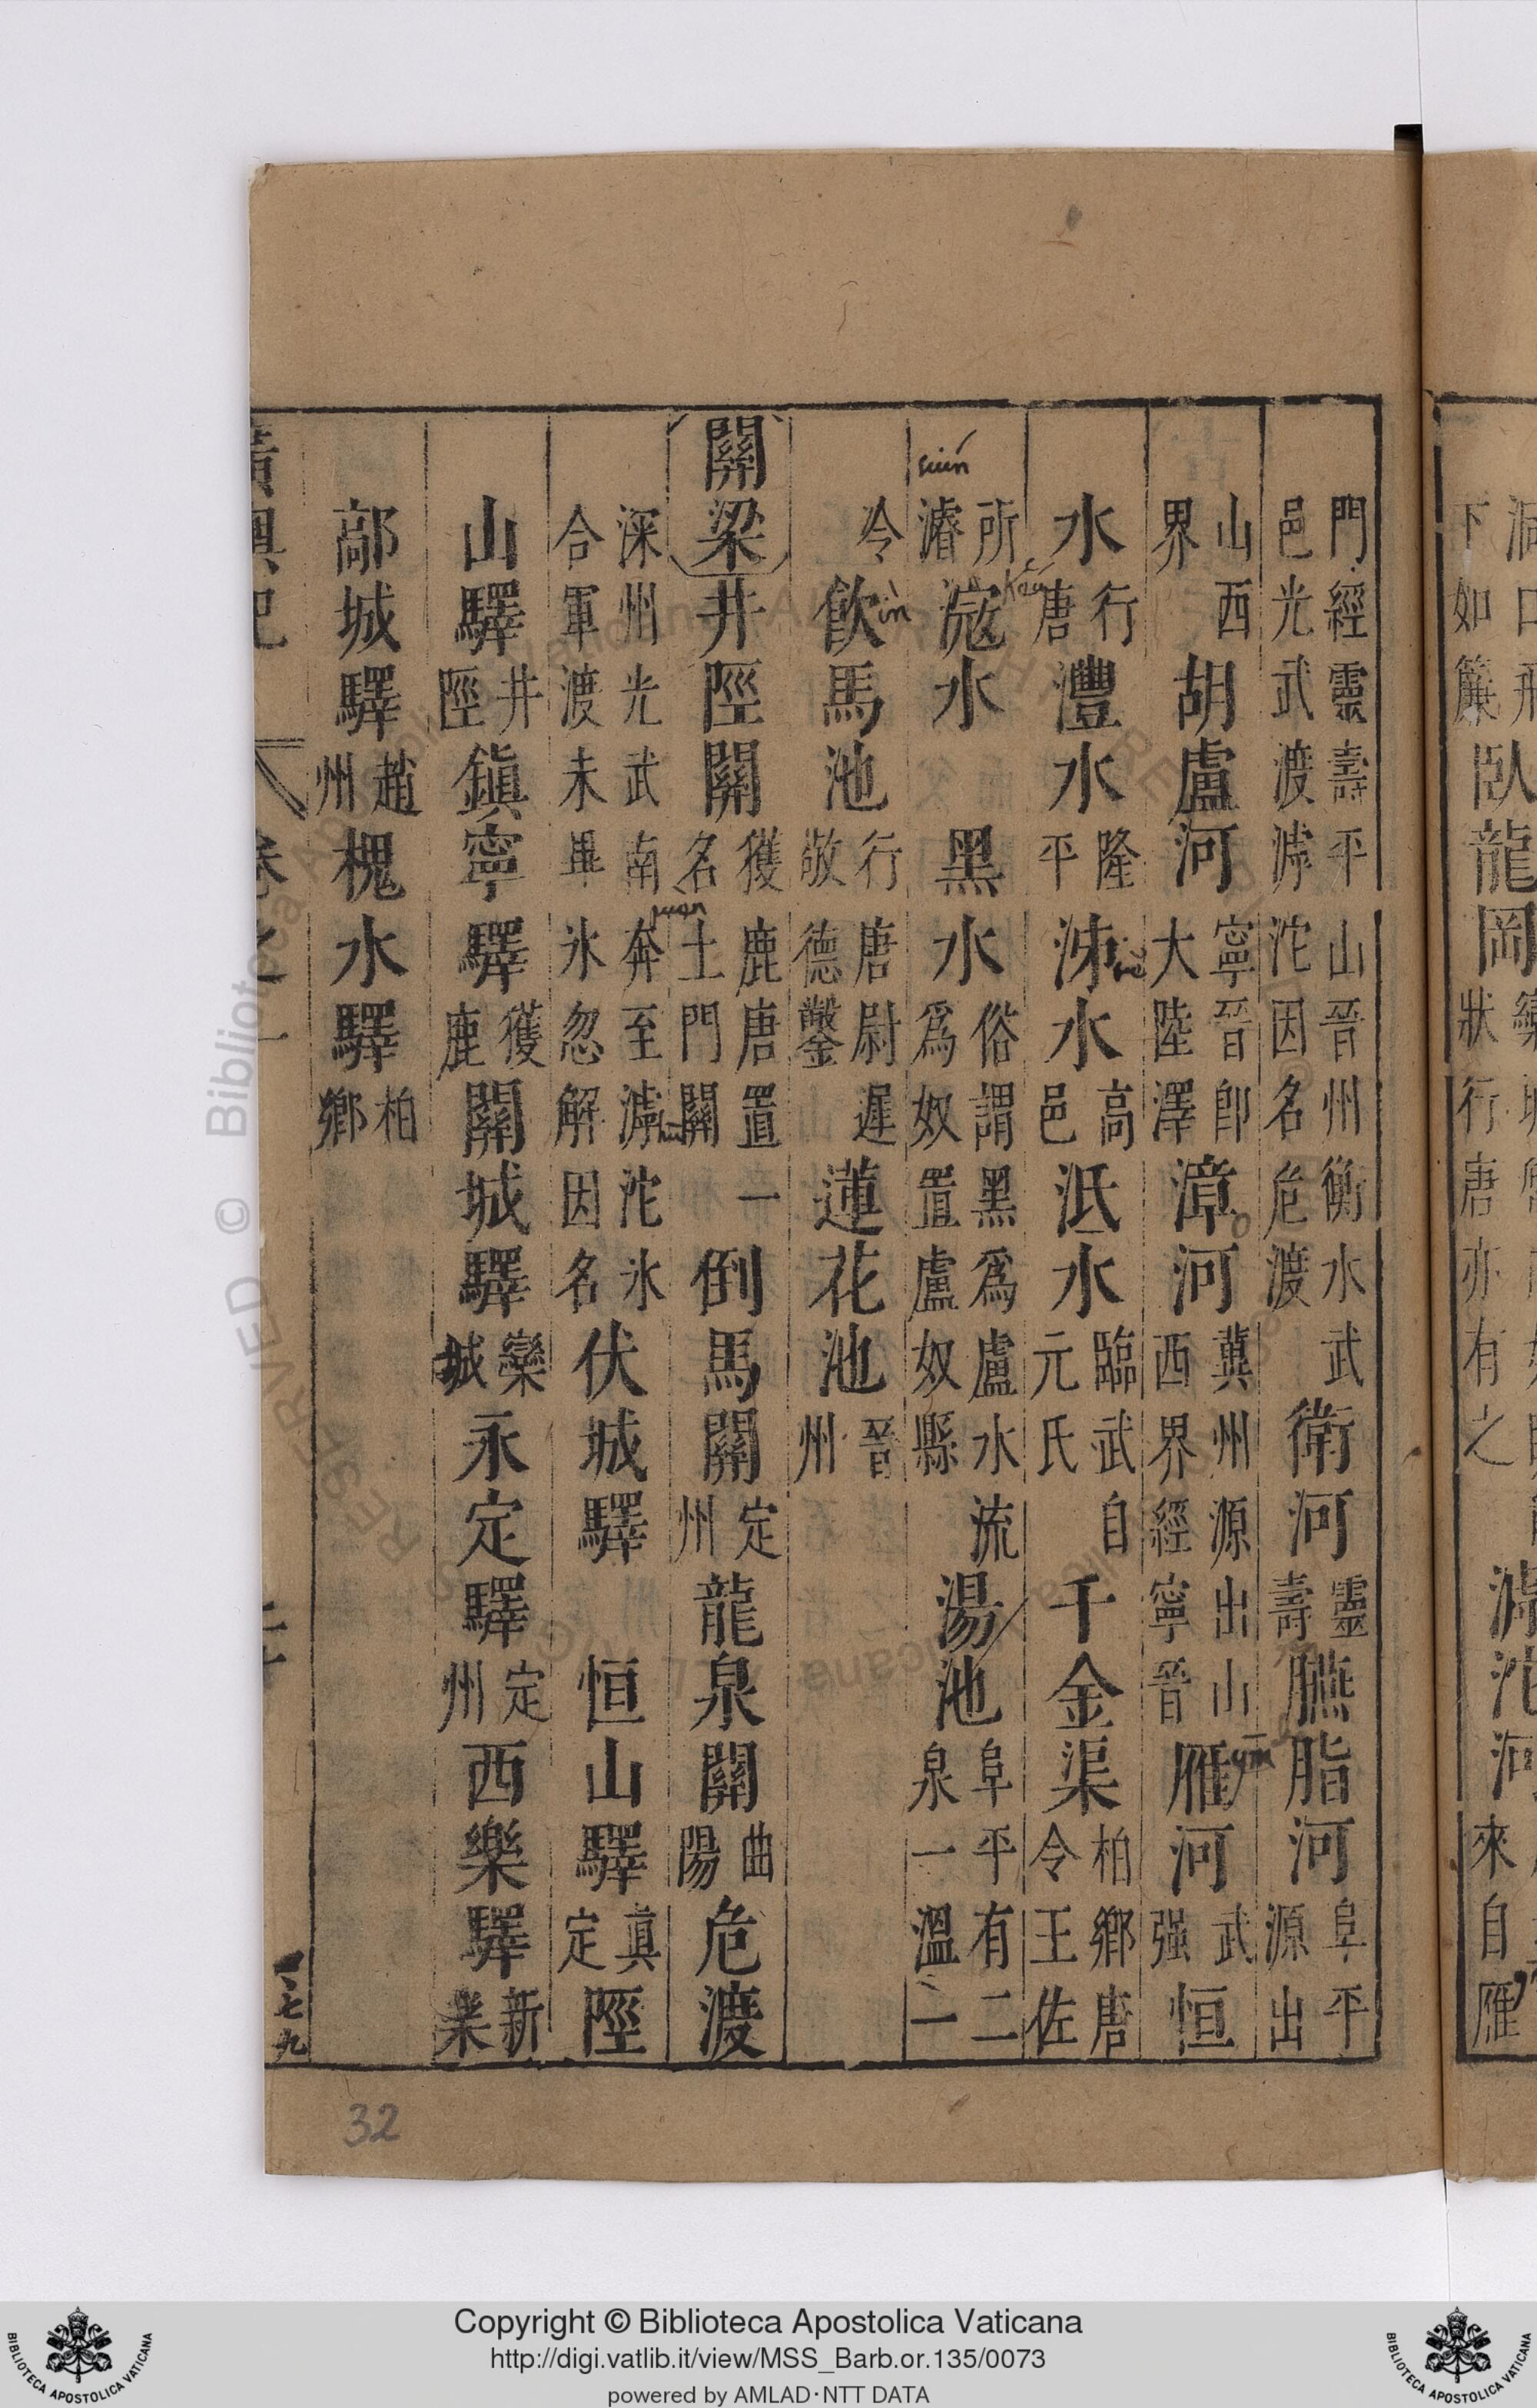 臥龍岡
門經靈壽平山晉州衡水武邑光武渡滹沱因名危渡衛河靈壽臙脂河阜平源出
山西界胡盧河寧晉即大陸澤漳河冀州源出山西界經寧晉雁河武强恒
水行唐灃水隆平洓水高邑泜水臨武自元氏千金渠柏鄉唐令王佐
所濬滱水黑水俗謂黑爲盧水流爲奴置盧奴縣湯池阜平有二泉一溫一
冷飲馬池行唐尉遲敬德鑿蓮花池晉州
關梁井陘關獲鹿唐置一名土門關倒馬關定州龍泉關曲陽危渡
深州光武南奔至滹沱氷合軍渡未畢氷忽解因名伏城驛恒山驛眞定陘
山驛井陘鎮寧驛獲鹿關城驛欒城永定驛定州西樂驛新樂
鄗城驛趙州槐水驛柏鄉
廣輿記 卷之一
32
Copyright © Biblioteca Apostolica Vaticana
http://digi.vatlib.it/view/MSS_Barb.or.135/0073
powered by AMLAD·NTT DATA